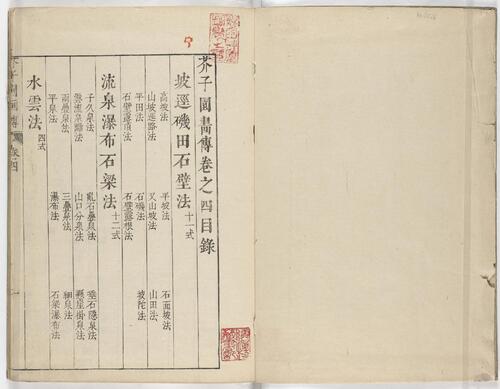 芥子園畫傳卷之四目錄
坡逕磯田石壁法 十一式
高坡法 平坡法 石面坡法
山坡進路法 又山坡法 山田法
平田法 石磯法 坡陀法
石壁露頂法 石壁露根法
流泉瀑布石梁法 十二式
子久泉法 亂石疊泉法 垂石隱泉法
山口分泉法 懸崖掛泉法
雨疊泉法 三疊泉法 細泉法
平泉法 瀑布法 石梁瀑布法
水雲法 四式